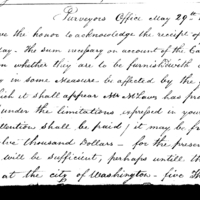 Purveyors Office May 29th
the honor to acknowledge the receipt of
day. The sum necessary on account of the Ca
on whether they are to be furnished with
y in some Measure be affected by the
hich it shall appear Mr McLaws has pro
under the limitations expressed in you
attention shall be paid; it may be fr
lve thousand Dollars - for the prese
will be sufficient, perhaps until th
at the city of Washington - five th